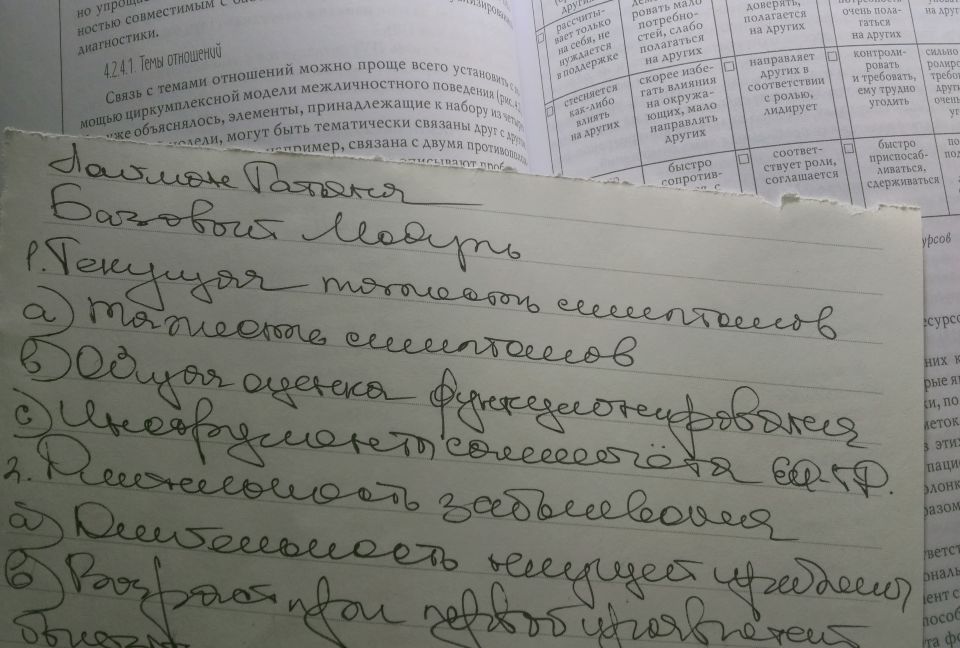 но упроща
ностью совместимым с
диагностики.
4.2.4.1. Темы отношений
Связь с темами отношений можно проще всего установить с п
мощью циркумплексной модели межличностного поведения (рис. 4.
же объяснялось, элементы, принадлежащие к набору из четыр
могут быть тематически связаны друг с друго
например, связана с двумя противополо
других
рассчиты-
вает только
на себя, не
нуждается
в поддержке
ровать мало
потребно-
стей, слабо
полагаться
на других
доверять,
полагается
на других
очень пола-
гаться
на других
на друг
стесняется
как-либо
влиять
на других
скорее избе-
гать влияния
на окружа-
ющих, мало
направлять
других
направляет
других в
соответствии
с ролью,
лидирует
контроли-
ровать
и требовать,
ему трудно
угодить
сильно
быстро
сопротив-
соответ-
ствует роли,
соглашается
быстро
приспосаб-
ливаться,
сдерживаться
Татьяна
Базовый Модуль
1. Текущая тяжесть симптомов
а) тяжесть симптомов
в) Общая оценка функционирования
с) Инструменты самоотчёта
2. Длительность заболевания
а) Длительность текущей проблемы
в) Возраст при первой
урсов